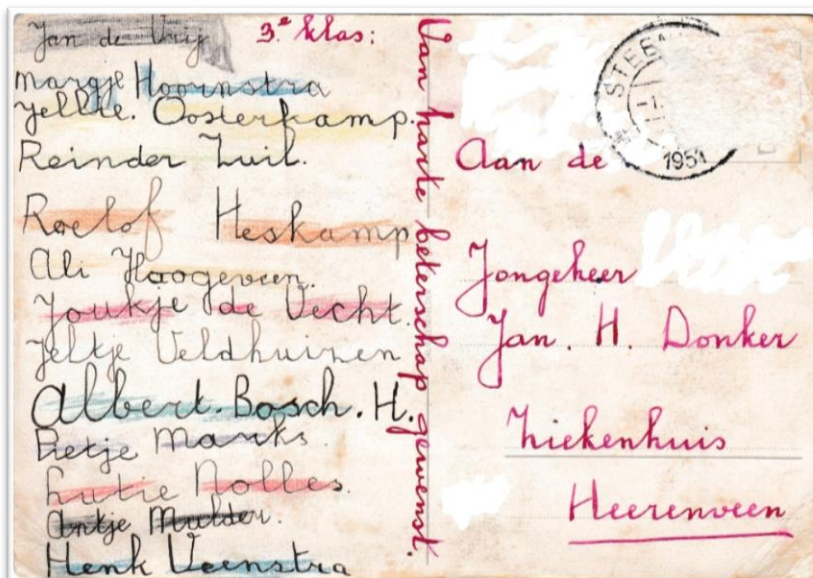 Jan de Vrij 3e klas:
Margje Hoornstra
Jeltie. Oosterkamp.
Reinder Zuil.
Roelof Heskamp
Ali Hoogeveen.
Joukje de Vecht.
Jeltje Veldhuizen
Albert. Bosch. H.
Pietje Marks.
Lutie Nolles.
Antje Mulder.
Henk Veenstra
Van harte beterschap gewenst.
1951
Aan de
Jongeheer
Jan. H. Donker
Ziekenhuis
Heerenveen